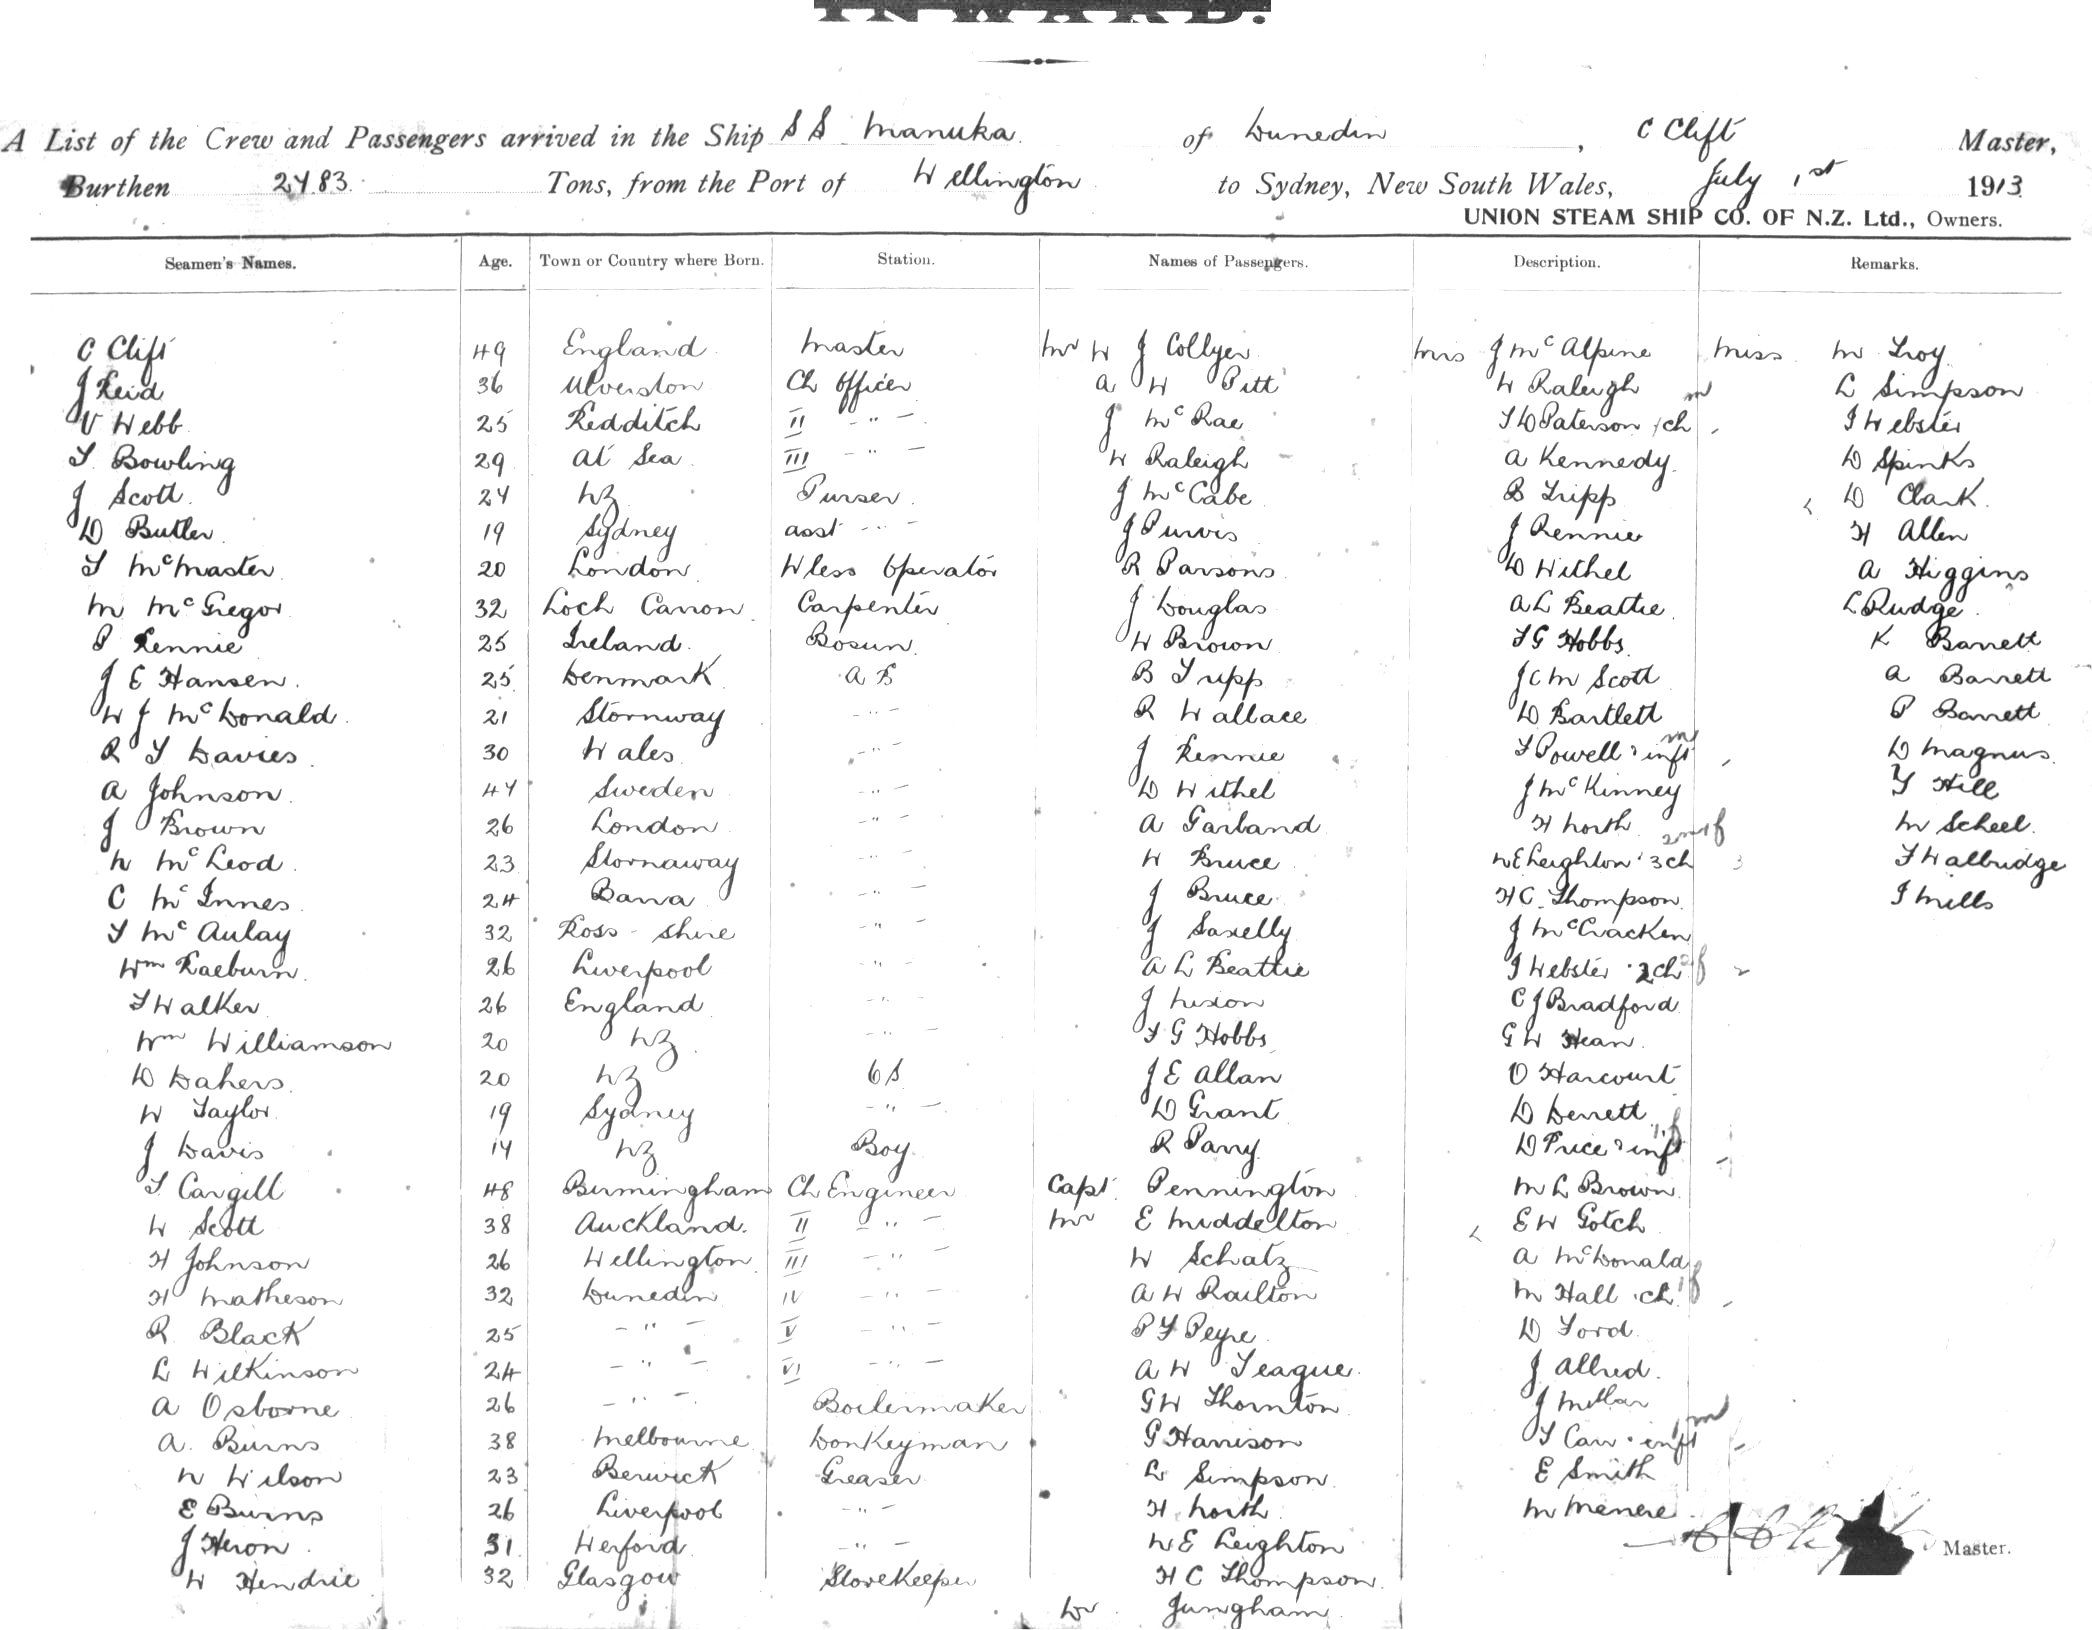 INWARD.
A List of the Crew and Passengers arrived in the Ship S S Manuka of Dunedin, C Clift Master,
Burthen 2483 Tons, from the Port of Wellington to Sydney, New South Wales, July 1st 1913
UNION STEAM SHIP CO. OF N.Z. Ltd., Owners.
Seamen's Names. Age. Town or Country where Born. Station. Names of Passengers. Description. Remarks.
C Clift 49 England Master Mr W J Collyer Mrs J McAlpine Miss M Troy
J Reid 36 Ulverston Ch Officer A W Pitt W Raleigh m L Simpson
V Webb 25 Redditch II - " - J McRae T D Paterson 1 ch J Webster
T Bowling 29 At Sea III - " - W Raleigh A Kennedy D Spinks
J Scott 24 NZ Purser J McCabe B Tripp D Clark
D Butler 19 Sydney asst - " - J Purvis J Rennie H Allen
T McMaster 20 London Wless Operator R Parsons D Withel A Higgins
M McGregor 32 Loch Carron Carpenter J Douglas A L Beattie L Rudge
P Rennie 25 Ireland Bosun W Brown T G Hobbs K Barrett
J E Hansen 25 Denmark A B B Tripp J C M Scott A Barrett
W J McDonald 21 Stornway - " - R Wallace D Bartlett P Barrett
R T Davies 30 Wales - " - J Rennie T Powell & inft D Magnus
A Johnson 44 Sweden - " - D Withel J McKinney T Hill
J Brown 26 London - " - A Garland H North M Scheel
N McLeod 23 Stornaway - " - W Bruce W E Leighton 3 ch T Walbridge
C McInnes 24 Barra - " - J Bruce H C Thompson J Mills
T McAulay 32 Ross-shire - " - J Saxelly J McCracken
Wm Raeburn 26 Liverpool - " - A L Beattie J Webster 2 ch
T Walker 26 England - " - J Nixon C J Bradford
Wm Williamson 20 NZ - " - T G Hobbs G W Hean
D Dahers 20 NZ O S J E Allan O Harcourt
W Taylor 19 Sydney - " - D Grant D Derrett
J Davis 14 NZ Boy R Parry D Price & inft
T Cargill 48 Birmingham Ch Engineer Capt Pennington M L Brown
W Scott 38 Auckland II - " - Mr E Middelton E W Gotch
H Johnson 26 Wellington III - " - W Schatz A McDonald
H Matheson 32 Dunedin IV - " - A W Railton M Hall ch
R Black 25 - " - V - " - P T Peyre D Ford
L Wilkinson 24 - " - VI - " - A W Teague J Allred
A Osborne 26 - " - Boilermaker G W Thornton J Millar
A Burns 38 Melbourne Donkeyman G Harrison T Carr inft
N Wilson 23 Berwick Greaser L Simpson E Smith
E Burns 26 Liverpool - " - H North M Menere
J Heron 31 Wexford - " - W E Leighton Master.
W Hendrie 32 Glasgow Storekeeper H C Thompson
Dr Jungham